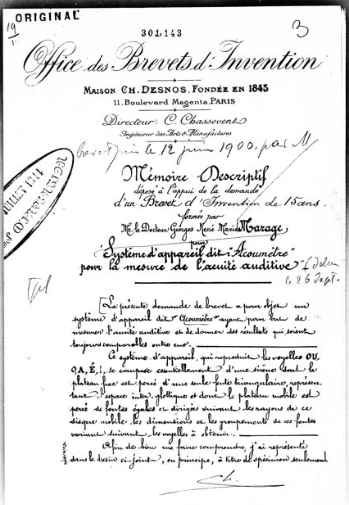 ORIGINAL
19
301.143
3
Office des Brevets d'Invention
MAISON CH. DESNOS, FONDÉE EN 1845
11, Boulevard Magenta, PARIS
Directeur C. Chassevent
Ingénieur des Arts & Manufactures
le 12 juin 1900, par M
Mémoire Descriptif
déposé à l'appui de la demande
d'un Brevet d'Invention de 15 ans.
formée par
Mr. le Docteur Georges René Marie Marage
pour
Système d'appareil dit "Acoumètre"
pour la mesure de l'acuité auditive
le 26 Sept.
La présente demande de brevet a pour objet un
système d'appareil dit Acoumètre ayant pour but de
mesurer l'acuité auditive et de donner des résultats qui soient
toujours comparables entre eux.
Ce système d'appareil, qui reproduit les voyelles OU,
O, A, É, I, se compose essentiellement d'une sirène dont le
plateau fixe est percé d'une seule fente triangulaire, représen
tant l'espace inter-glottique et dont le plateau mobile est
percé de fentes égales et dirigées suivant les rayons de ce
disque mobile, les dimensions et les groupements de ces fentes
variant suivant les voyelles à obtenir.
Afin de bien me faire comprendre, j'ai représenté
dans le dessin ci-joint, en principe, à titre de spécimen seulement